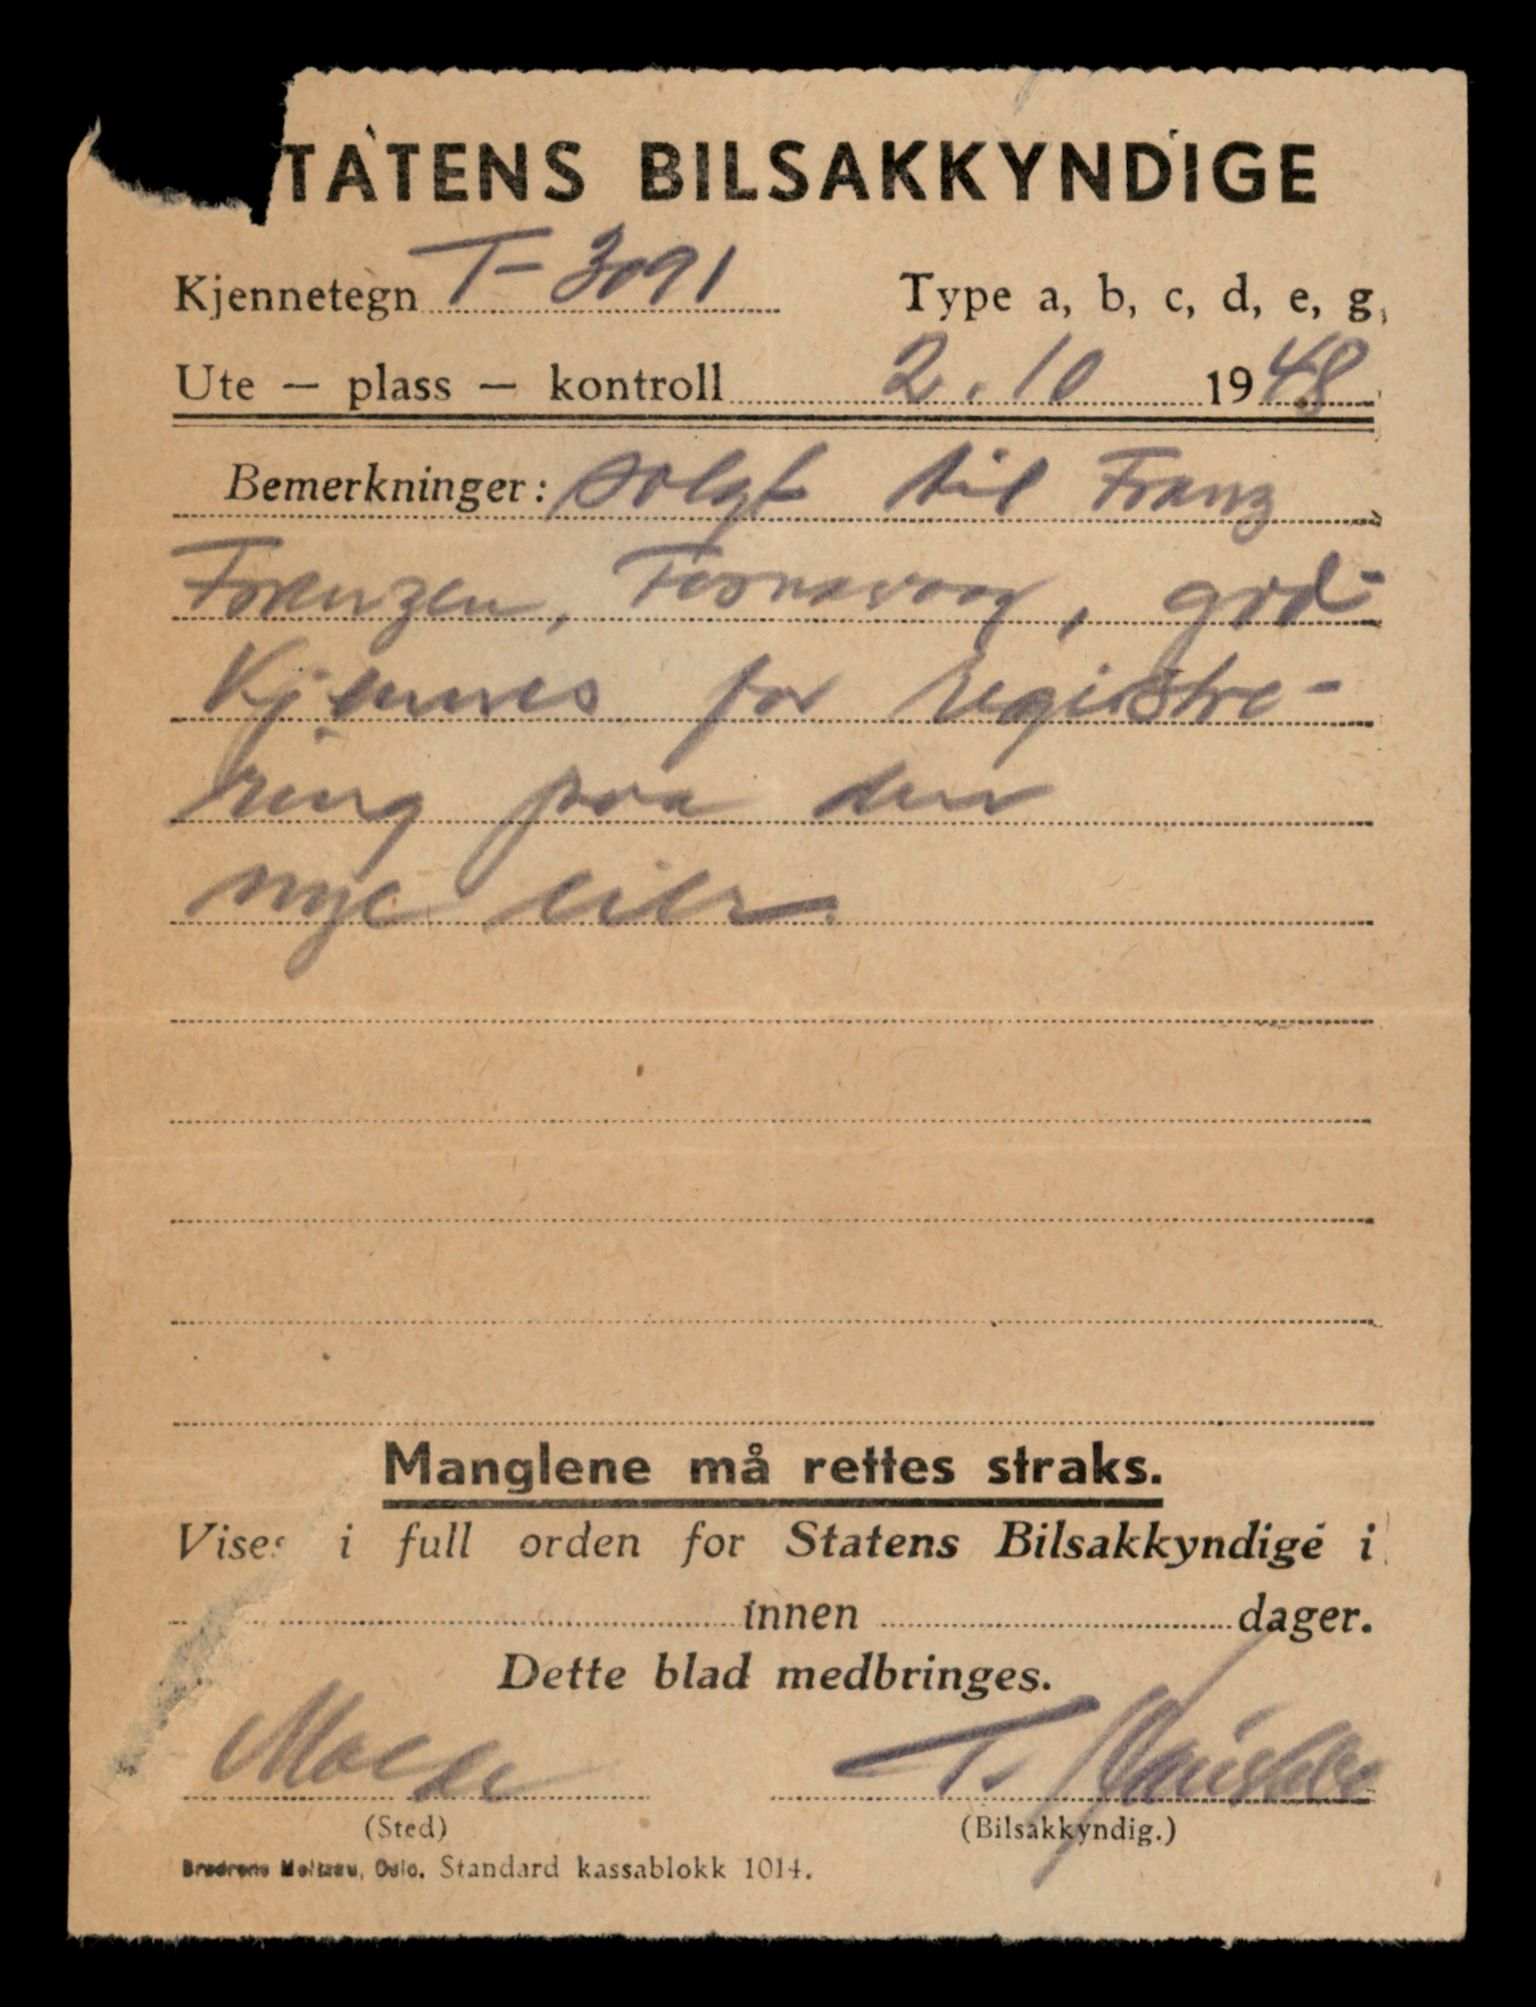 TATENS BILSAKKYNDIGE
Kjennetegn T-3091 Type a, b, c, d, e, g,
Ute — plass — kontroll 2.10 1948
Bemerkninger: solgt til Franz
Franzen, Fosnavaag, god-
kjennes for registre-
ring paa den
nye eier.
Manglene må rettes straks.
Vises i full orden for Statens Bilsakkyndige i
innen dager.
Dette blad medbringes.
Molde T.
(Sted) (Bilsakkyndig.)
Brødrene Meltzau, Oslo. Standard kassablokk 1014.